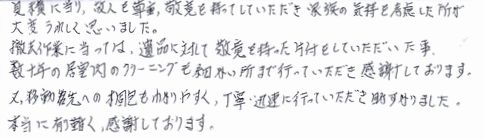 見積に当り、故人も尊重、敬意を持ってしていただき家族の気持を考慮した所が
大変うれしく思いました。
撤去作業に当っては、遺品に対して敬意を持った片付をしていただいた事、
数十年の居室内のクリーニングも細かい所まで行っていただき感謝しております。
又、移動先への梱包もわかりやすく、丁寧・迅速に行っていただき助かりました。
本当に有難く、感謝しております。